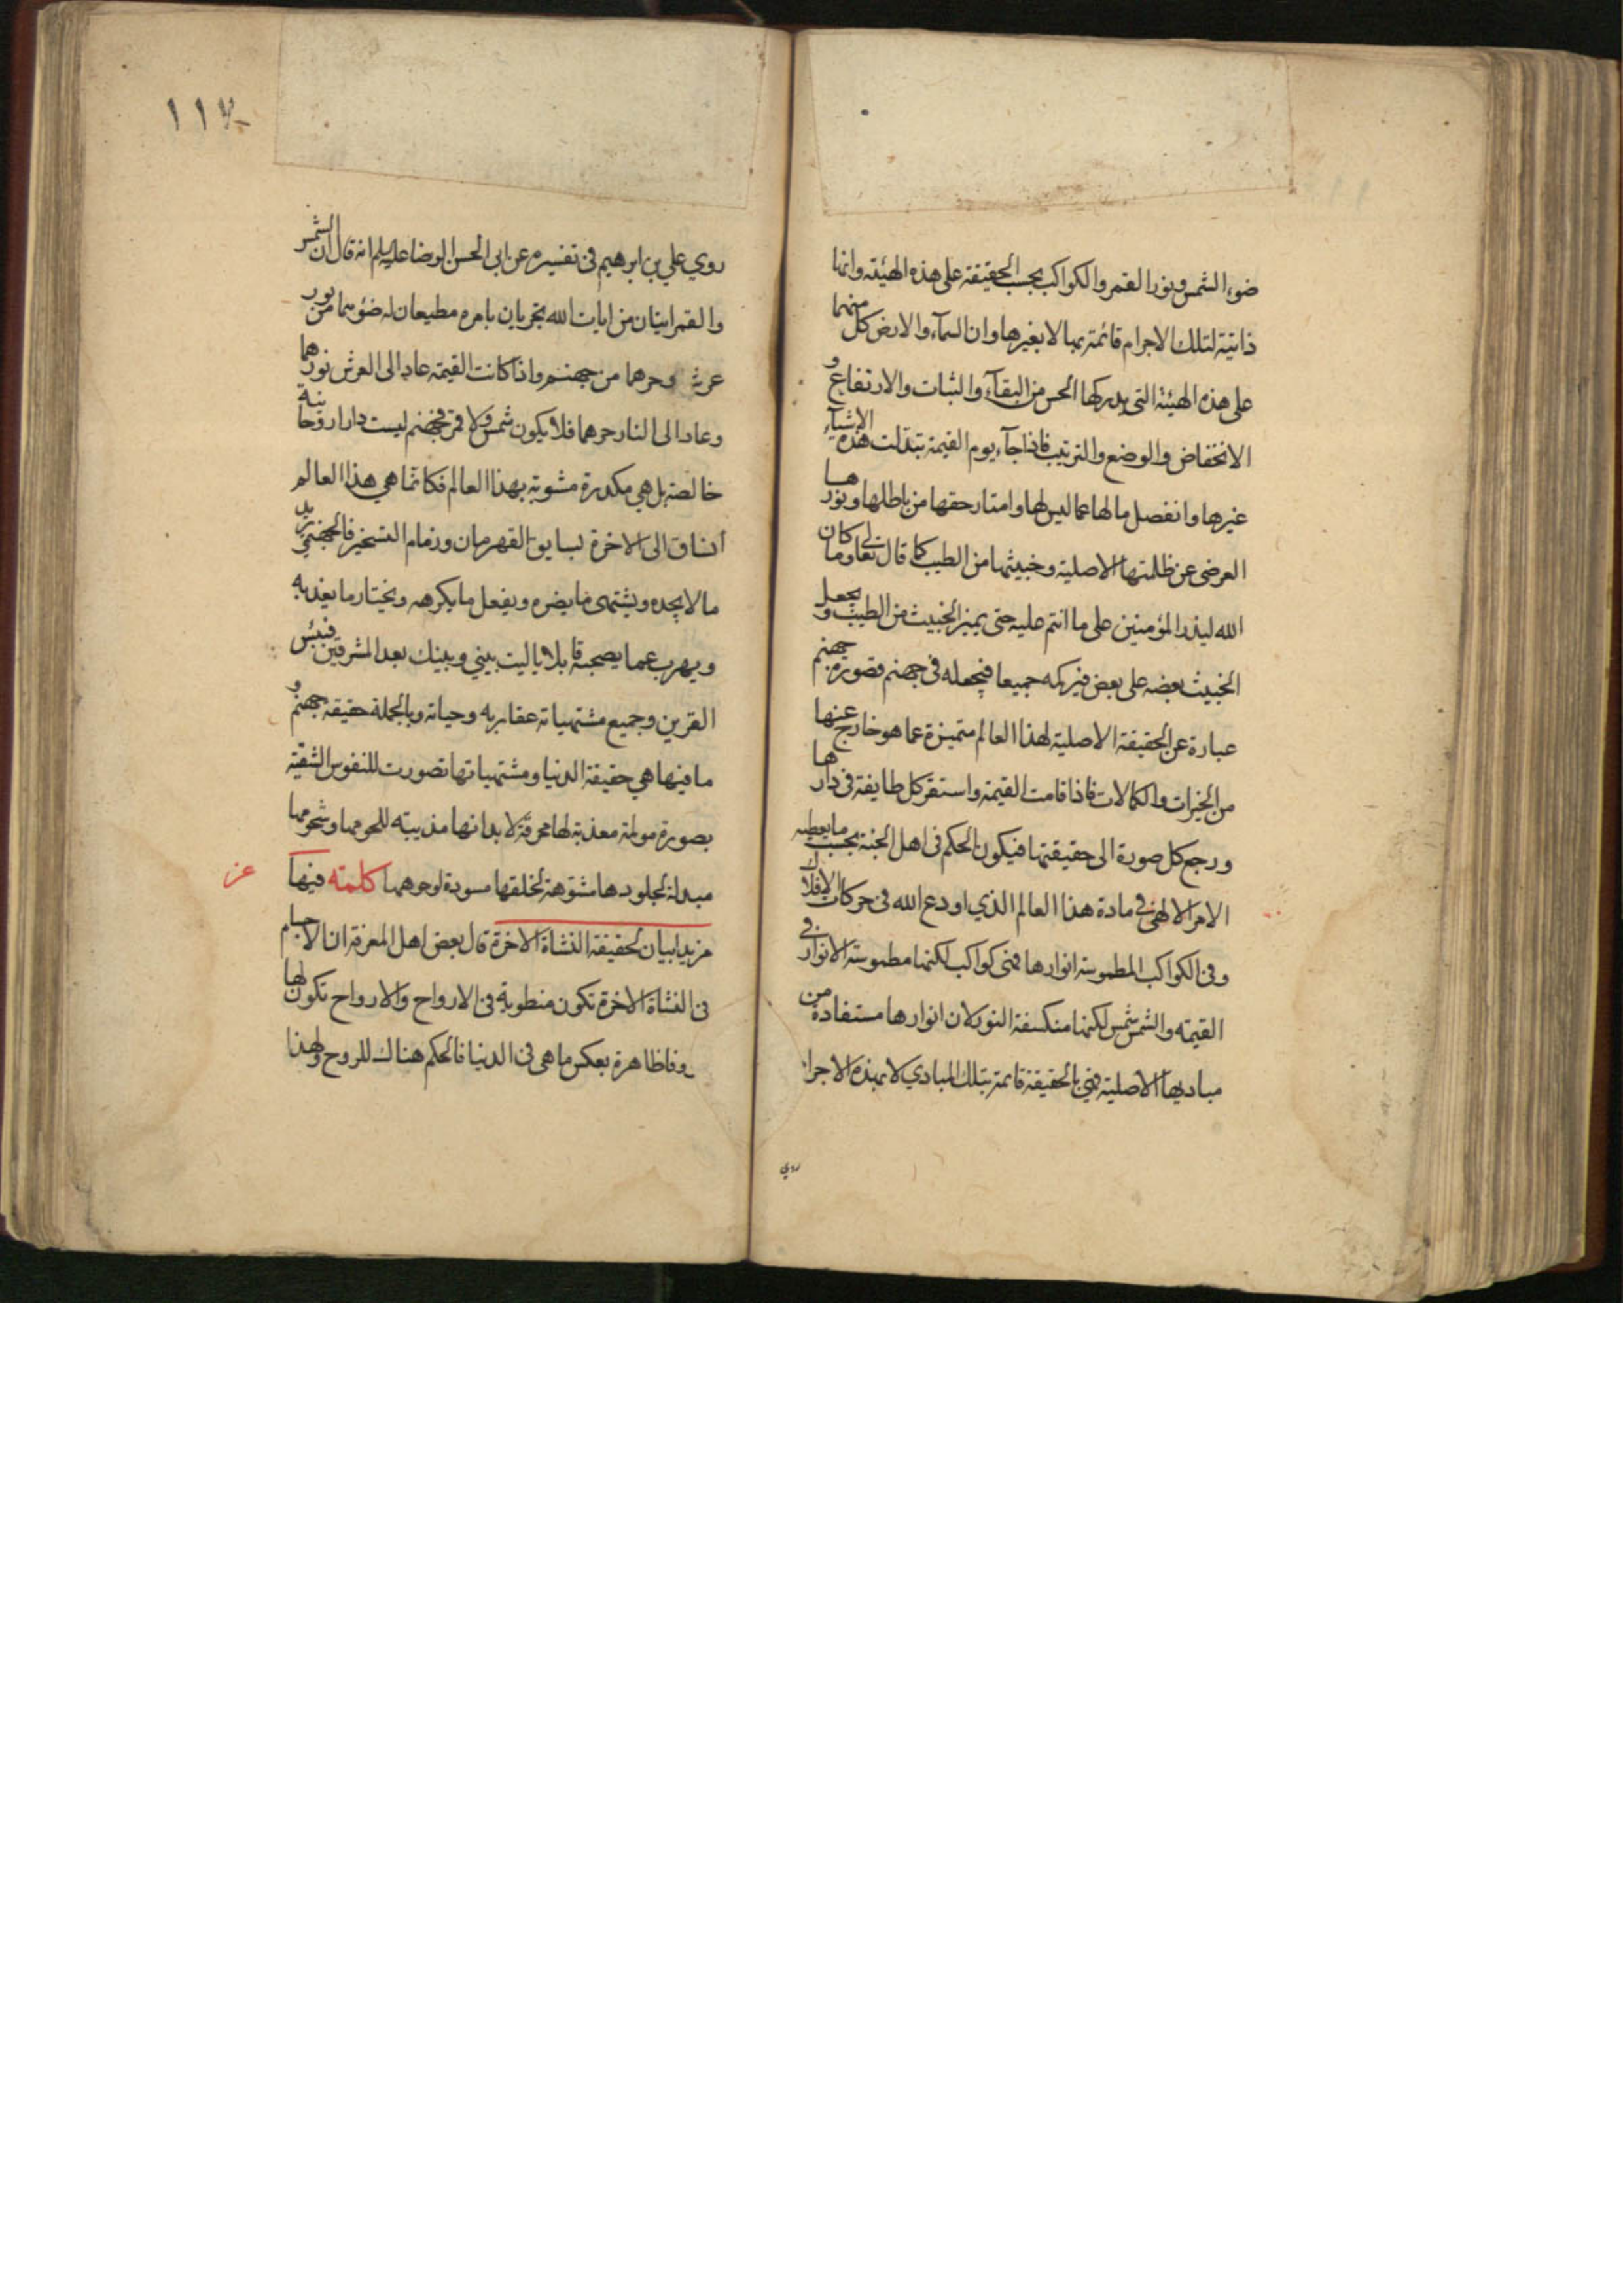 ضوء الشمس ونور القمر والكواكب بحسب الحقيقة على هذه الهيئة وانها
ذاتية لتلك الاجرام قائمة بها لا بغيرها وان السمآء والارض كل منهما
على هذه الهيئة التي يدركها الحس من البقآء والثبات والارتفاع و
الانخفاض والوضع والترتيب فاذا جآء يوم القيمة تبدلت هذه الاشيآء
غيرها وانفصل مالها عما ليس لها وامتاز حقها من باطلها ونورها
العرضى عن ظلمتها الاصلية وخبيثها من الطيب كما قال تعالى وما كان
الله ليذر المؤمنين على ما انتم عليه حتى يميز الخبيث من الطيب و يجعل
الخبيث بعضه على بعض فيركمه جميعا فيجعله فى جهنم فصورة جهنم
عبارة عن الحقيقة الاصلية لهذا العالم متميزة عما هو خارج عنها
من الخيرات والكمالات فاذا قامت القيمة واستقر كل طايفة فى دارها
ورجع كل صورة الى حقيقتها فيكون الحكم فى اهل الجنة بحسب ما يعطيه
الامر الالهى فى مادة هذا العالم الذي اودع الله فى حركات الافلاك
وفى الكواكب المطموسة انوارها فهى كواكب لكنها مطموسة الانوار فى
القيمة والشمس شمس لكنها منكسفة النور لان انوارها مستفادة من
مباديها الاصلية فهى بالحقيقة قائمة بتلك المبادي لا بهذه الاجرا
روي
١١٧
روي علي بن ابرهيم فى تفسيره عن ابى الحسن الرضا عليه السلم انه قال ان الشمس
والقمر ايتان من ايات الله يجريان بامره مطيعان له ضوئهما من نور
عرشه وحرهما من جهنم واذا كانت القيمة عاد الى العرش نورهما
وعاد الى النار حرهما فلا يكون شمس ولا قمر فجهنم ليست دارا روحانية
خالصة بل هي مكدرة مشوبة بهذا العالم فكانما هي هذا العالم
انساق الى الاخرة بسايق القهرمان وزمام التسخير فالجهنمي يريد
ما لا يجده ويشتهى ما يضره ويفعل ما يكرهه ويختار ما يعذبه
ويهرب عما يصحبه قايلا يا ليت بيني وبينك بعد المشرقين فبئس
القرين وجميع مشتهياته عقاربه وحياته وبالجملة حقيقة جهنم و
ما فيها هي حقيقة الدنيا ومشتهياتها تصورت للنفوس الشقية
بصورة مولمة معذبة لها محرقة لابدانها مذيبة للحومها وشحومها
مبدلة لجلودها مشوهة لخلقها مسودة لوجوهها كلمته فيها
مزيد بيان لحقيقة النشاة الاخرة قال بعض اهل المعرفة ان الاجسام
فى النشاة الاخرة تكون منطوية فى الارواح والارواح تكون لها
ظروفا ظاهرة بعكس ما هى فى الدنيا فالحكم هناك للروح ولهذا